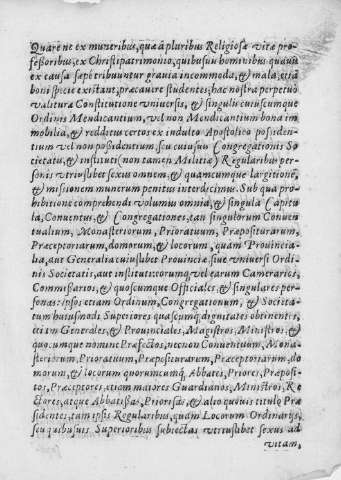 Quare ne ex muneribus, quæ à pluribus Religiosæ vitæ pro-
fessoribus, ex Christi patrimonio, quibusuis hominibus quauis
ex causa sæpè tribuuntur grauia incommoda, & mala, etiã
boni specie existant, præcauere studentes, hac nostra perpetuò
valitura Constitutione vniuersis, & singulis cuiuscumque
Ordinis Mendicantium, vel non Mendicantium bona im
mobilia, & redditus certos ex indulto Apostolico possiden-
tium vel non possidentium, seu cuiusuis Congregationis So
cietatis, & instituti (non tamen Militiæ) Regularibus per-
sonis vtriuslibet sexus omnem, & quamcumque largitionẽ,
& missionem munerum penitus interdicimus. Sub qua pro-
hibitione comprehendi volumus omnia, & singula Capitu
la, Conuentus, & Congregationes, tan singulorum Conuen
tualium, Monasteriorum, Prioratuum, Præpositurarum,
Præceptoriarum, domorum, & locorum, quam Prouincia-
lia, aut Generalia cuiuslibet Prouinciæ, siue vniuersi Ordi-
nis Societatis, aut instituti: eorumq; vel earum Camerarios,
Commissarios, & quoscumque Officiales, & singulares per-
sonas: ipsos etiam Ordinum, Congregationum, & Societa-
tum huiusmodi Superiores quascumq; dignitates obtinentes,
etiam Generales, & Prouinciales, Magistros, Ministros, &
quocumque nomine Præfectos, necnon Conuentuum, Mona-
steriorum, Prioratuum, Præpositurarum, Præceptoriarum, do
morum, & locorum quorumcumq; Abbates, Priores, Præposi-
tos, Præceptores, etiam maiores Guardianos, Ministros, Re
ctores, atque Abbatissas, Priorissas, & alio quouis titulo Præ
sidentes, tam ipsis Regularibus, quam Locorum Ordinarijs,
seu quibusuis Superioribus subiectas vtriuslibet sexus ad
vitam,